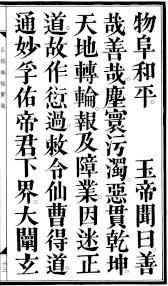 物阜和平。　玉帝聞曰善
哉善哉塵寰污濁。惡貫乾坤。
天地轉輪報及障業因迷正
道故作愆過敕令仙曹得道
通妙孚佑帝君下界。大闡玄